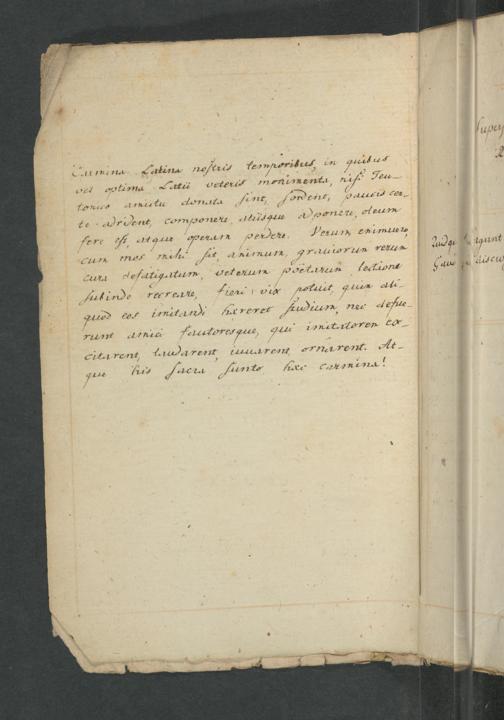 Carmina Latina nostris temporibus, in quibus
vel optima Latii veteris monimenta, nisi Teu-
tonico amictu donata sint, sordent, paucis cer-
te adrident, componere, aliisque adponere, oleum
fere est, atque operam perdere. Verum enimvero,
cum mos mihi sit, animum, graviorum rerum
cura defatigatum, veterum poëtarum lectione
subinde recreare, fieri vix potuit, quin ali-
quod eos imitandi hæreret studium, nec defue-
runt amici fautoresque, qui imitatorem ex-
citarent, laudarent, iuuarent, ornarent. At-
que his sacra sunto hæc carmina!